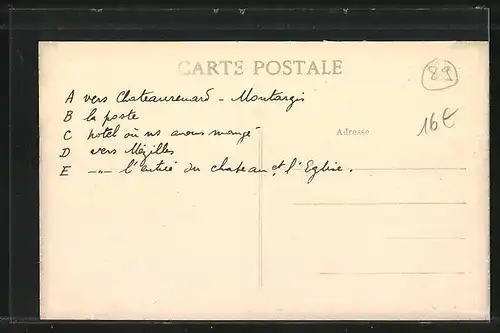 CARTE POSTALE
89
A vers Chateaurenard - Montargis
B la poste
16€
C hotel où ns avons mangé
Adresse
D vers Mézilles
E -"- l'entrée du chateau et l'Eglise.